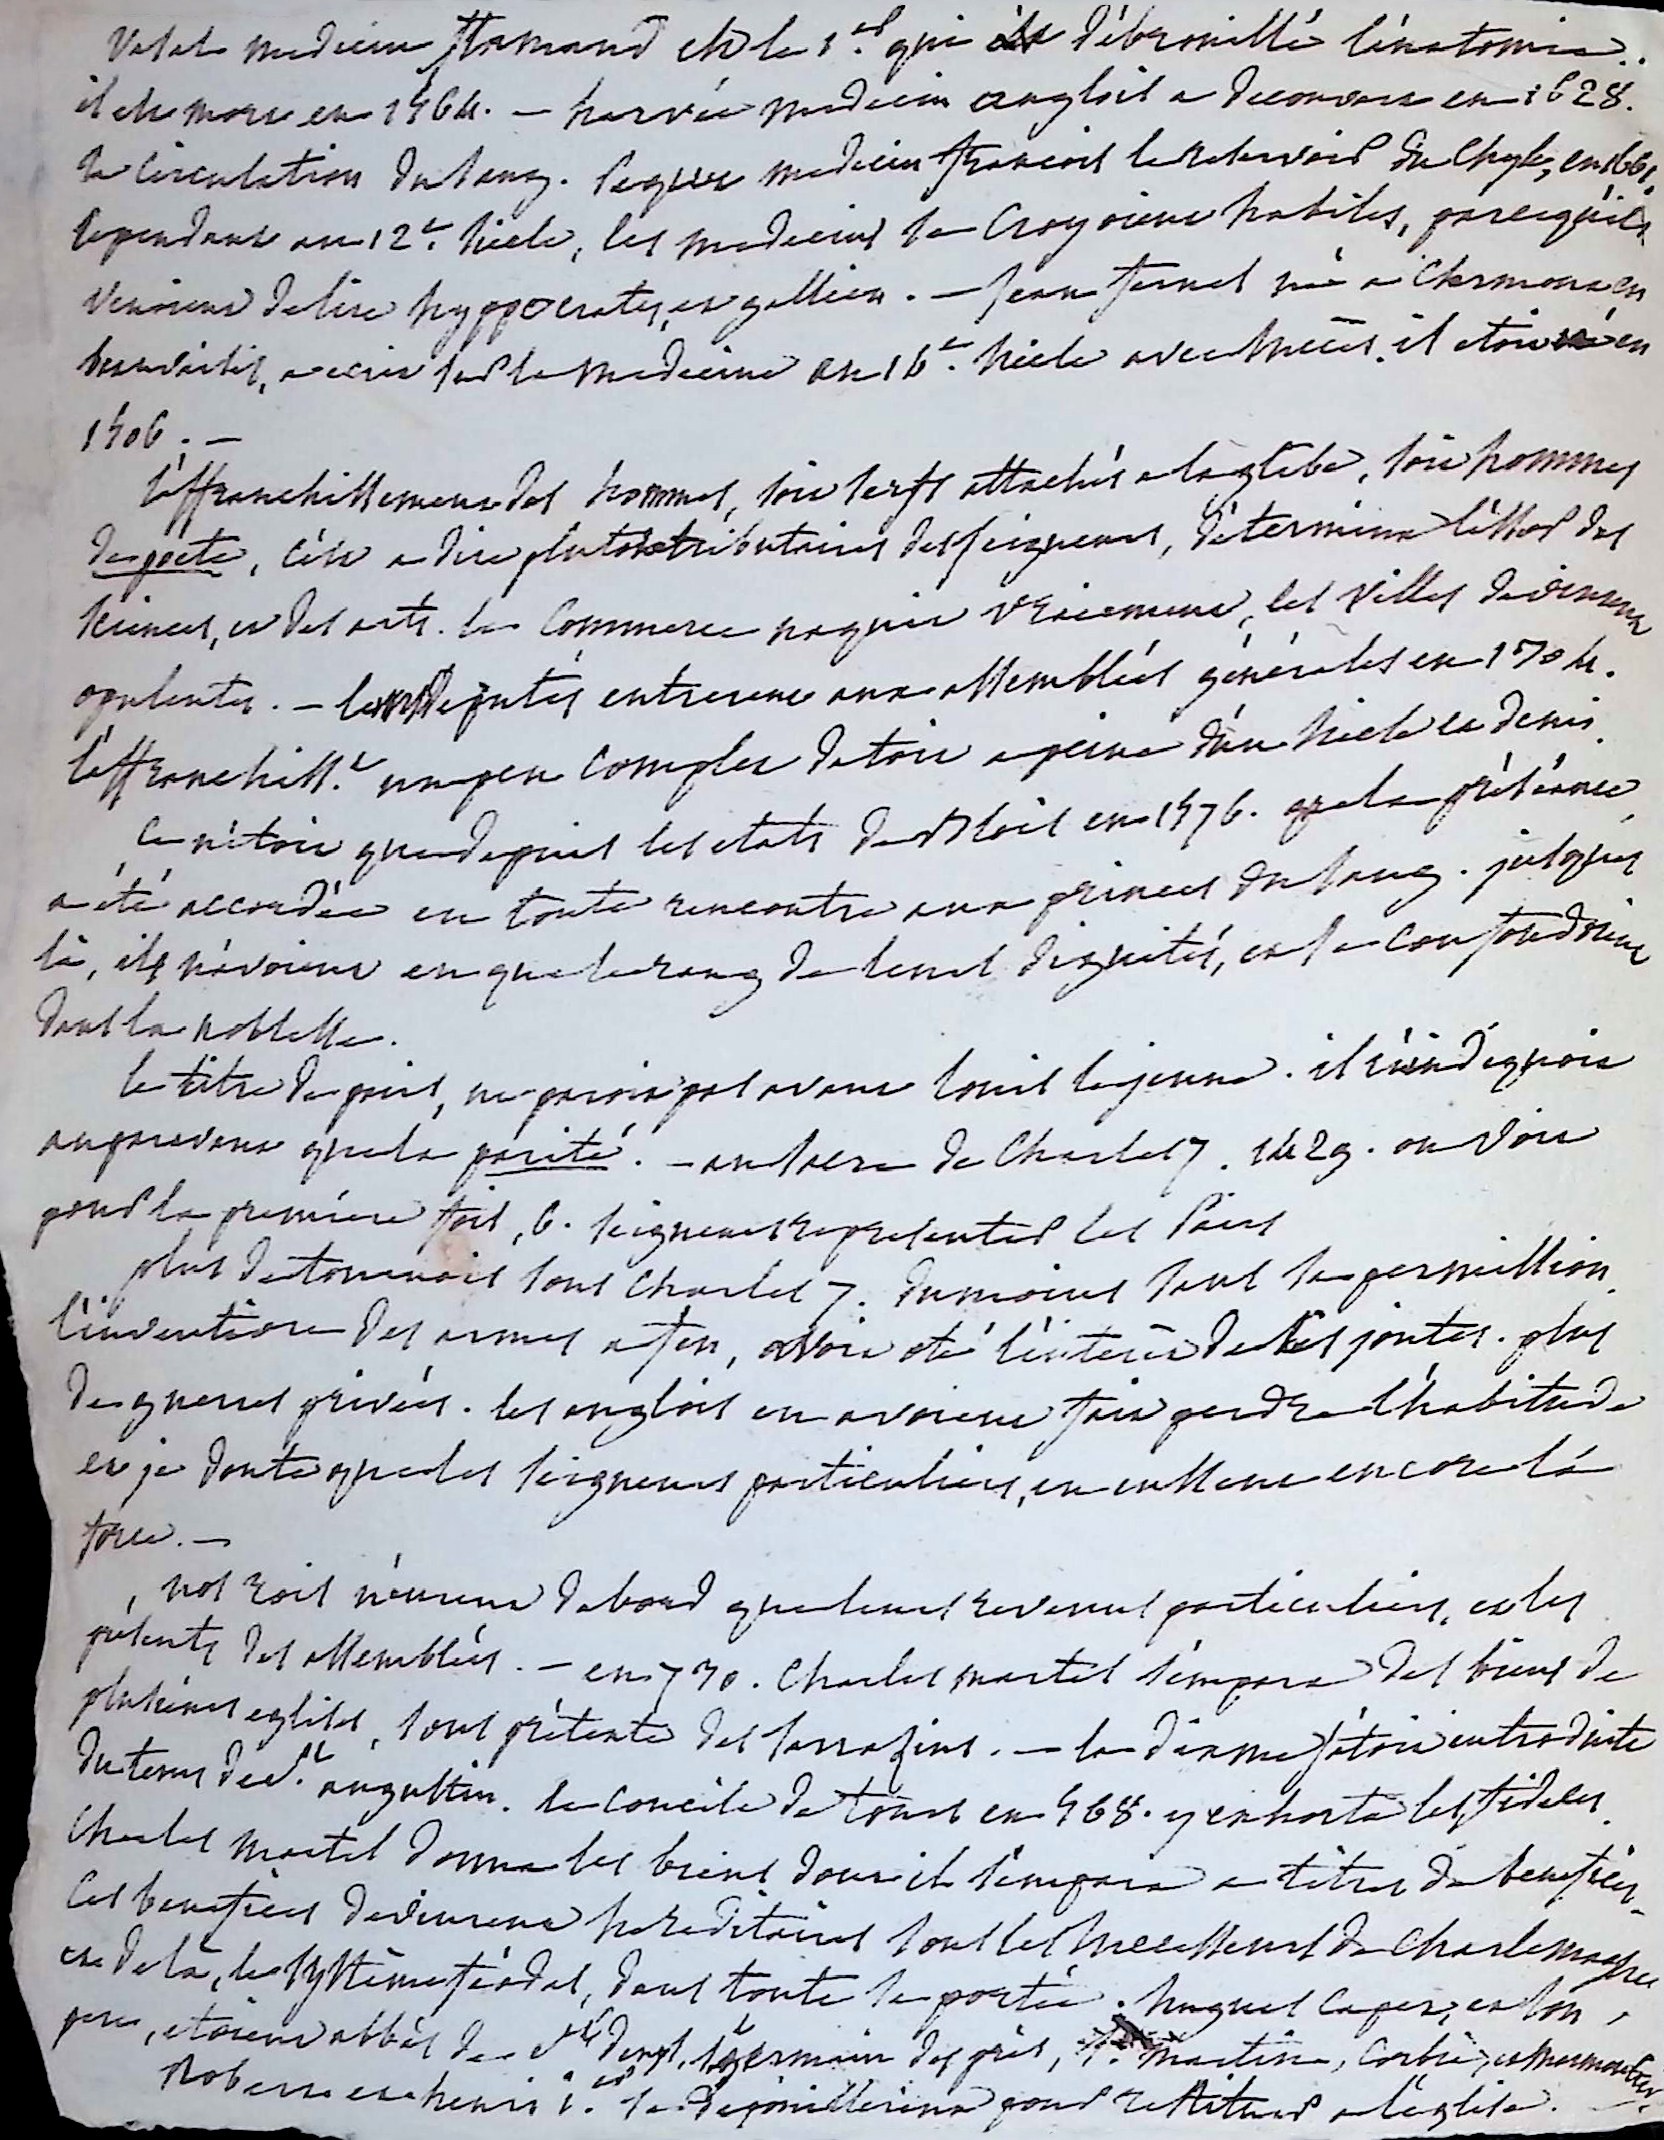 Vesale medecin flamand est le 1.er qui ait débrouillé l'anatomie.
il est mort en 1564. — harvée medecin anglois a decouvert en 1628.
la circulation du sang. Pequet medecin francois le reservoir du Chyle, en 1661.
cependant au 12e. siecle, les medecins se croyoient habiles, parcequ'ils
venoient de lire hyppocrates, et gallien. — jean fernel né a Clermont en
beauvaisis, a ecrit sur la medecine au 16e. siecle avec succès. il etoit né en
1506. —
l'affranchissement des hommes, soit serfs attachés a la glebe, soit hommes
de poete, c'est a dire plutost tributaires des seigneurs, détermina l'essor des
sciences, et des arts. le commerce naquit vraiement, les villes devinrent
opulentes. — leurs députés entrerent aux assemblées générales en 1304.
l'affranchisst. un peu complet datoit a peine d'un siecle et demi.
ce n'étoit que depuis les etats de Blois en 1576. que la préséance
a été accordée en toute rencontre aux princes du sang. jusques
là, ils n'avoient eu que le rang de leurs dignités, et se confondoient
dans la noblesse.
le titre de pairs, ne paroit pas avant louis le jeune. il n'indiquoit
auparavant que la parité. — au sacre de Charles 7. 1429. on voit
pour la premiere fois, 6. seigneurs representer les Pairs
plus de tournois sous Charles 7. du moins sans sa permission.
l'invention des armes a feu, avoit oté l'interêt de ces joutes. plus
de guerres privées. les anglois en avoient fait perdre l'habitude
et je doute que les seigneurs particuliers, en eussent encore la
force. —
nos rois n'eurent d'abord que leurs revenus particuliers, et les
présents des assemblées. — en 730. Charles martel s'empara des biens de
plusieurs eglises, sous prétexte des sarrasins. — la dixme s'étoit introduite
du tems de St. augustin. le concile de tours en 568. y exhorta les fideles.
Charles martel donna les biens dont il s'empara a titres de benefices.
Ces benefices devinrent hereditaires sous les successeurs de Charlemagne
et de là, le système féodal, dans toute sa portée. hugues Capet, et son
pere, etoient abbés de St. denys, St. germain des prés, St. Martin, Corbie, et Marmoutier.
Robert et henri 1er. se depouillerent pour restituer a l'église. —